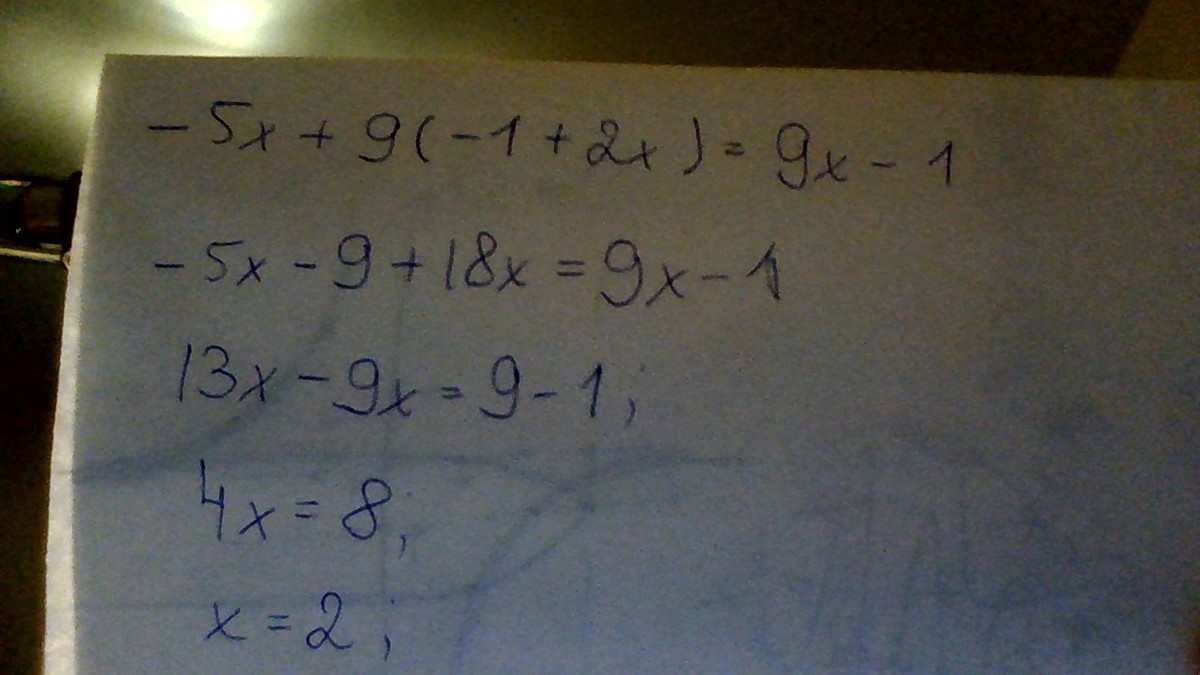 -5x + 9(-1 + 2x) = 9x - 1
-5x - 9 + 18x = 9x - 1
13x - 9x = 9 - 1;
4x = 8;
x = 2;